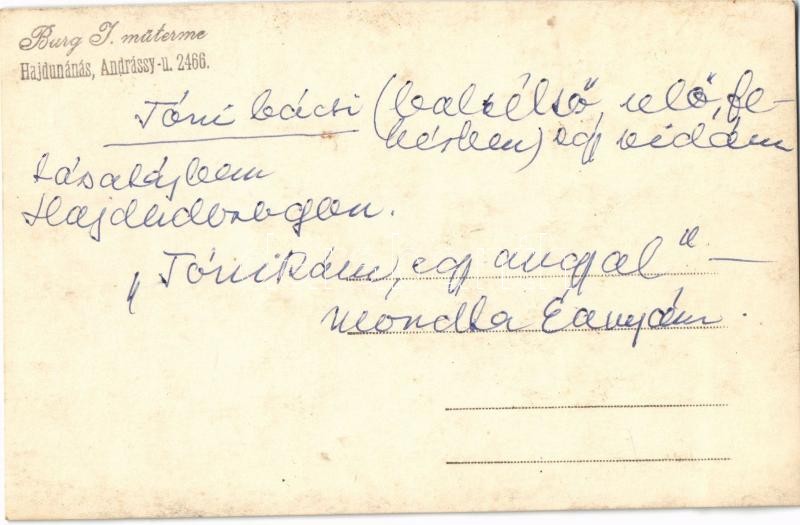 Burg J. műterme
Hajdunánás, Andrássy-u. 2466.
Tóni bácsi (balszélső, ülő, fe-
hérben) egy vidám
társaságban
Hajdudorogon.
„Tónikám, egy angyal" –
mondta Édanyám.